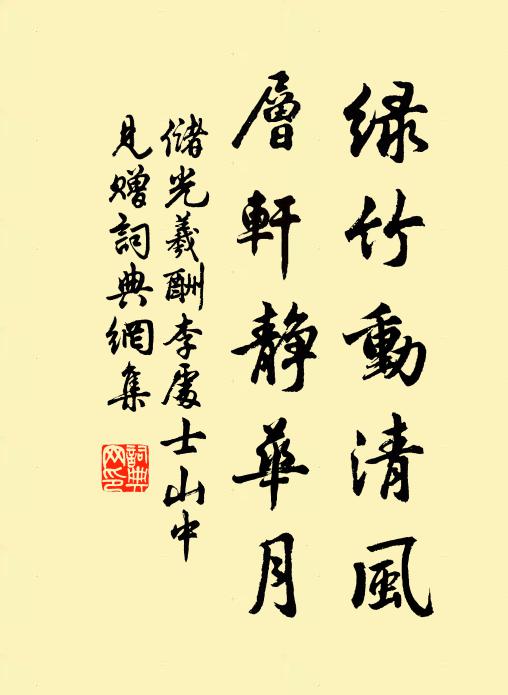 绿竹動清風
層軒静華月
儲光羲酬李處士山中
見贈詞典網集
詞典
网印